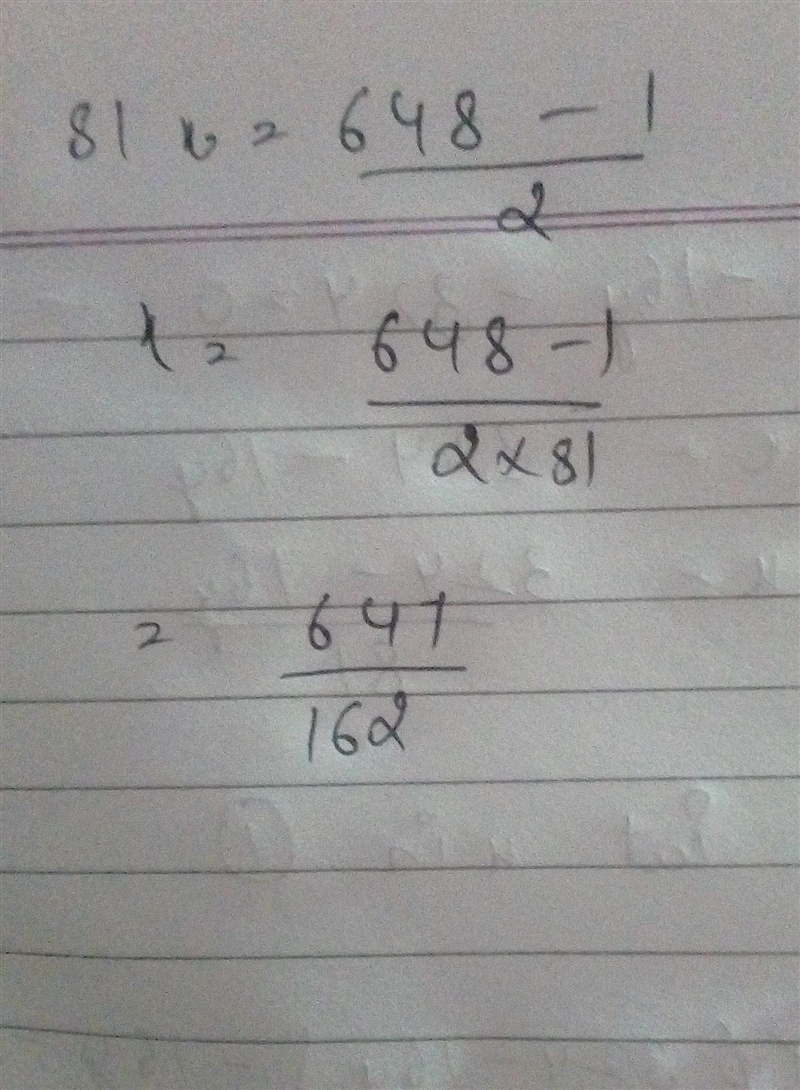 81 x = 648 - 1
2
x = 648 - 1
2 x 81
= 647
162